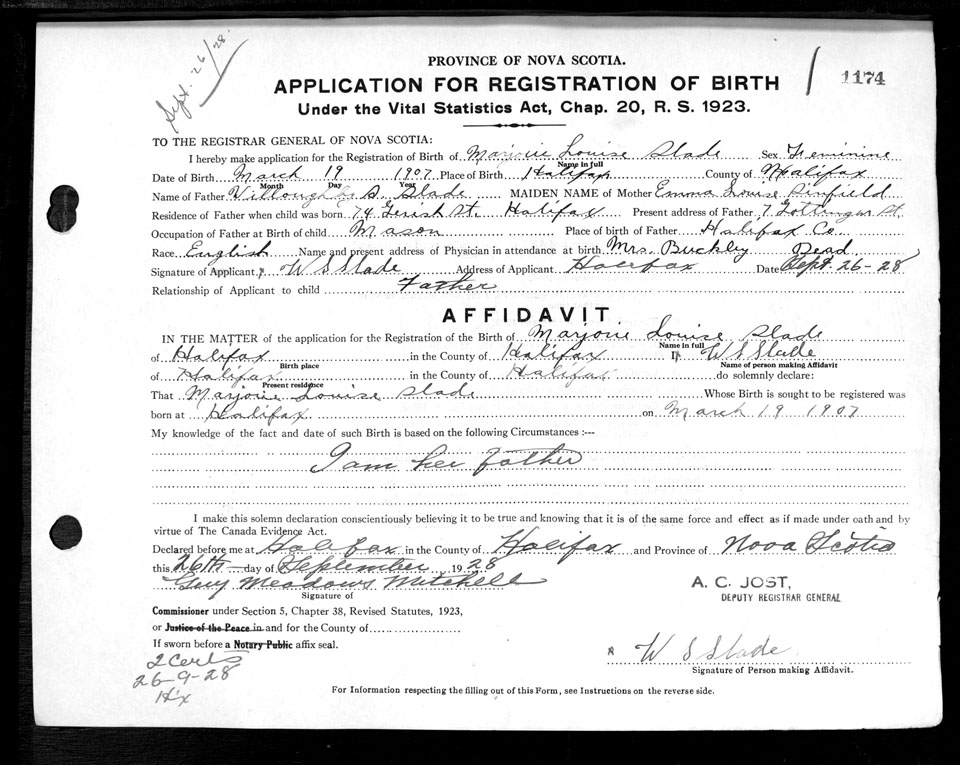 Sept. 26/28.
PROVINCE OF NOVA SCOTIA.
1174
APPLICATION FOR REGISTRATION OF BIRTH
Under the Vital Statistics Act, Chap. 20, R. S. 1923.
TO THE REGISTRAR GENERAL OF NOVA SCOTIA:
I hereby make application for the Registration of Birth of Marjorie Louise Slade Sex Feminine
Name in full
Date of Birth March 19 1907 Place of Birth Halifax County of Halifax
Month Day Year
Name of Father Willoughby S. Slade MAIDEN NAME of Mother Emma Louise Pinfield
Residence of Father when child was born 74 Gerish St. Halifax Present address of Father 7 Gottingen St.
Occupation of Father at Birth of child Mason Place of birth of Father Halifax Co
Race English Name and present address of Physician in attendance at birth Mrs. Buckley Dead
Signature of Applicant W S Slade Address of Applicant Halifax Date Sept. 26-28
Relationship of Applicant to child Father
AFFIDAVIT
IN THE MATTER of the application for the Registration of the Birth of Marjorie Louise Slade
Name in full
of Halifax in the County of Halifax I, W S Slade
Birth place Name of person making Affidavit
of Halifax in the County of Halifax do solemnly declare:
Present residence
That Marjorie Louise Slade Whose Birth is sought to be registered was
born at Halifax on March 19 1907
My knowledge of the fact and date of such Birth is based on the following Circumstances :---
I am her father
I make this solemn declaration conscientiously believing it to be true and knowing that it is of the same force and effect as if made under oath and by
virtue of The Canada Evidence Act.
Declared before me at Halifax in the County of Halifax and Province of Nova Scotia
this 26th day of September 1928
Guy Meadows Mitchell
Signature of
A. C. JOST,
DEPUTY REGISTRAR GENERAL
Commissioner under Section 5, Chapter 38, Revised Statutes, 1923,
or Justice of the Peace in and for the County of
If sworn before a Notary Public affix seal.
x W S Slade
Signature of Person making Affidavit.
2 Certs
26-9-28
Hx
For Information respecting the filling out of this Form, see Instructions on the reverse side.